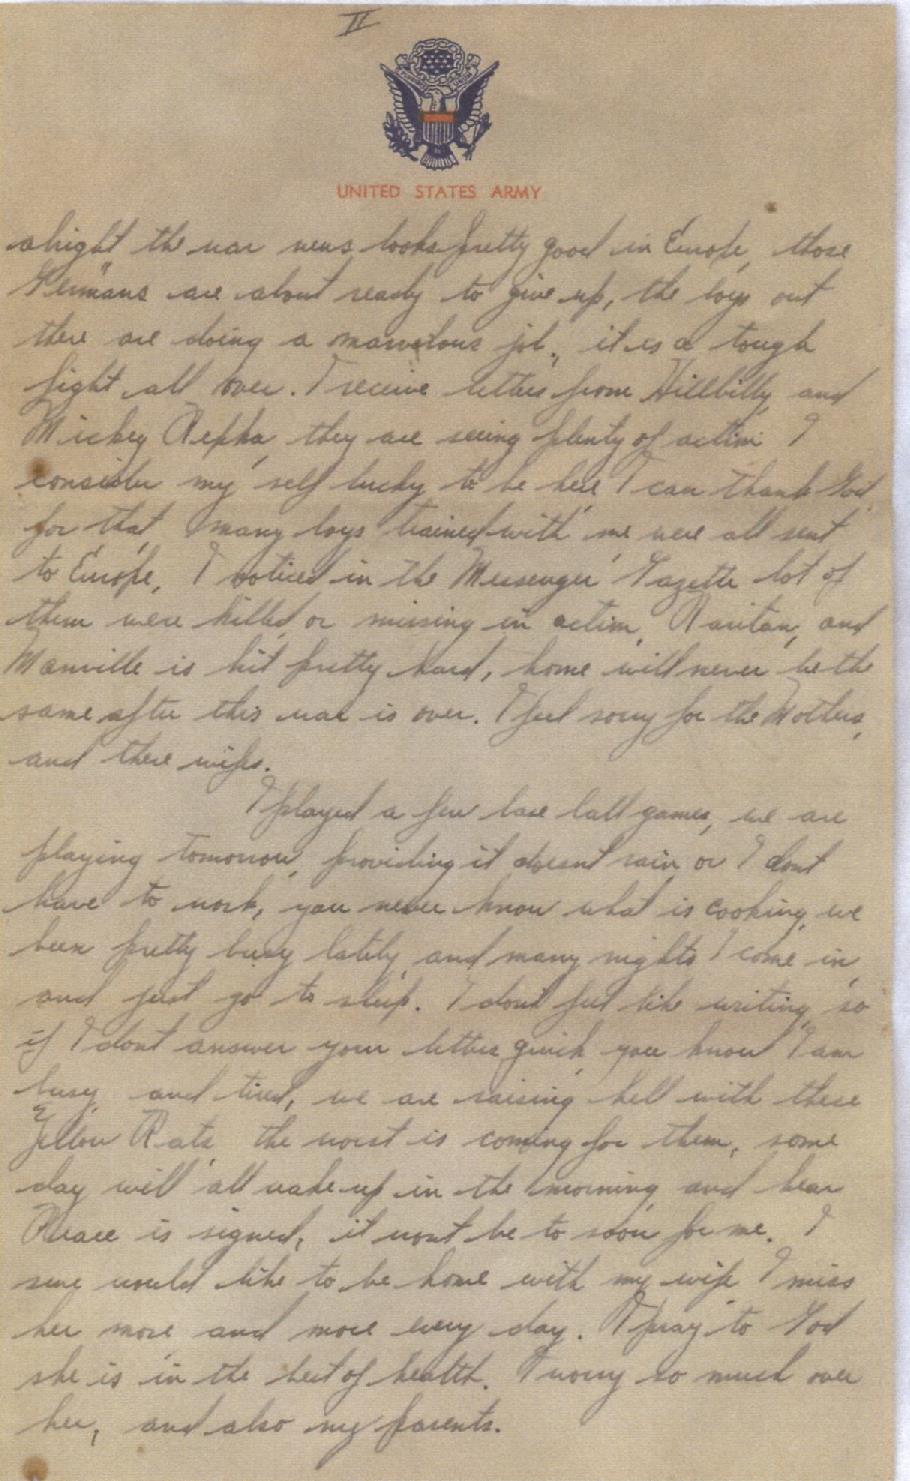 II
UNITED STATES ARMY
alright the war news looks pretty good in Europe, those
Germans are about ready to give up, the boys out
there are doing a marvelous job, it is a tough
fight all over. I receive letters from Hillbilly and
Mickey they are seeing plenty of action I
consider my self lucky to be here I can thank God
for that, many boys trained with me were all sent
to Europe, I noticed in the Messenger Gazette lot of
them were killed or missing in action, Raritan, and
Manville is hit pretty hard, home will never be the
same after this war is over. I feel sorry for the Mothers,
and there wifes.
I played a few base ball games, we are
playing tomorrow, providing it doesnt rain or I dont
have to work, you never know what is cooking, we
been pretty busy lately, and many nights I come in
and just go to sleep. I dont feel like writing, so
if I dont answer your letters quick you know I am
busy and tired, we are raising hell with these
Yellow Rats the worst is coming for them, some
day will all wake up in the morning and hear
Peace is signed, it wont be to soon for me. I
sure would like to be home with my wife I miss
her more and more every day. I pray to God
she is in the best of health. I worry so much over
her, and also my parents.